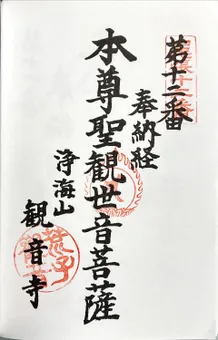 第十二番
奉納経
本尊聖観世音菩薩
浄海山
観音寺